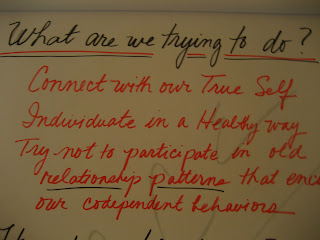 What are we trying to do?
Connect with our True Self
Individuate in a Healthy way
Try not to participate in old
relationship patterns that
our codependent behaviors